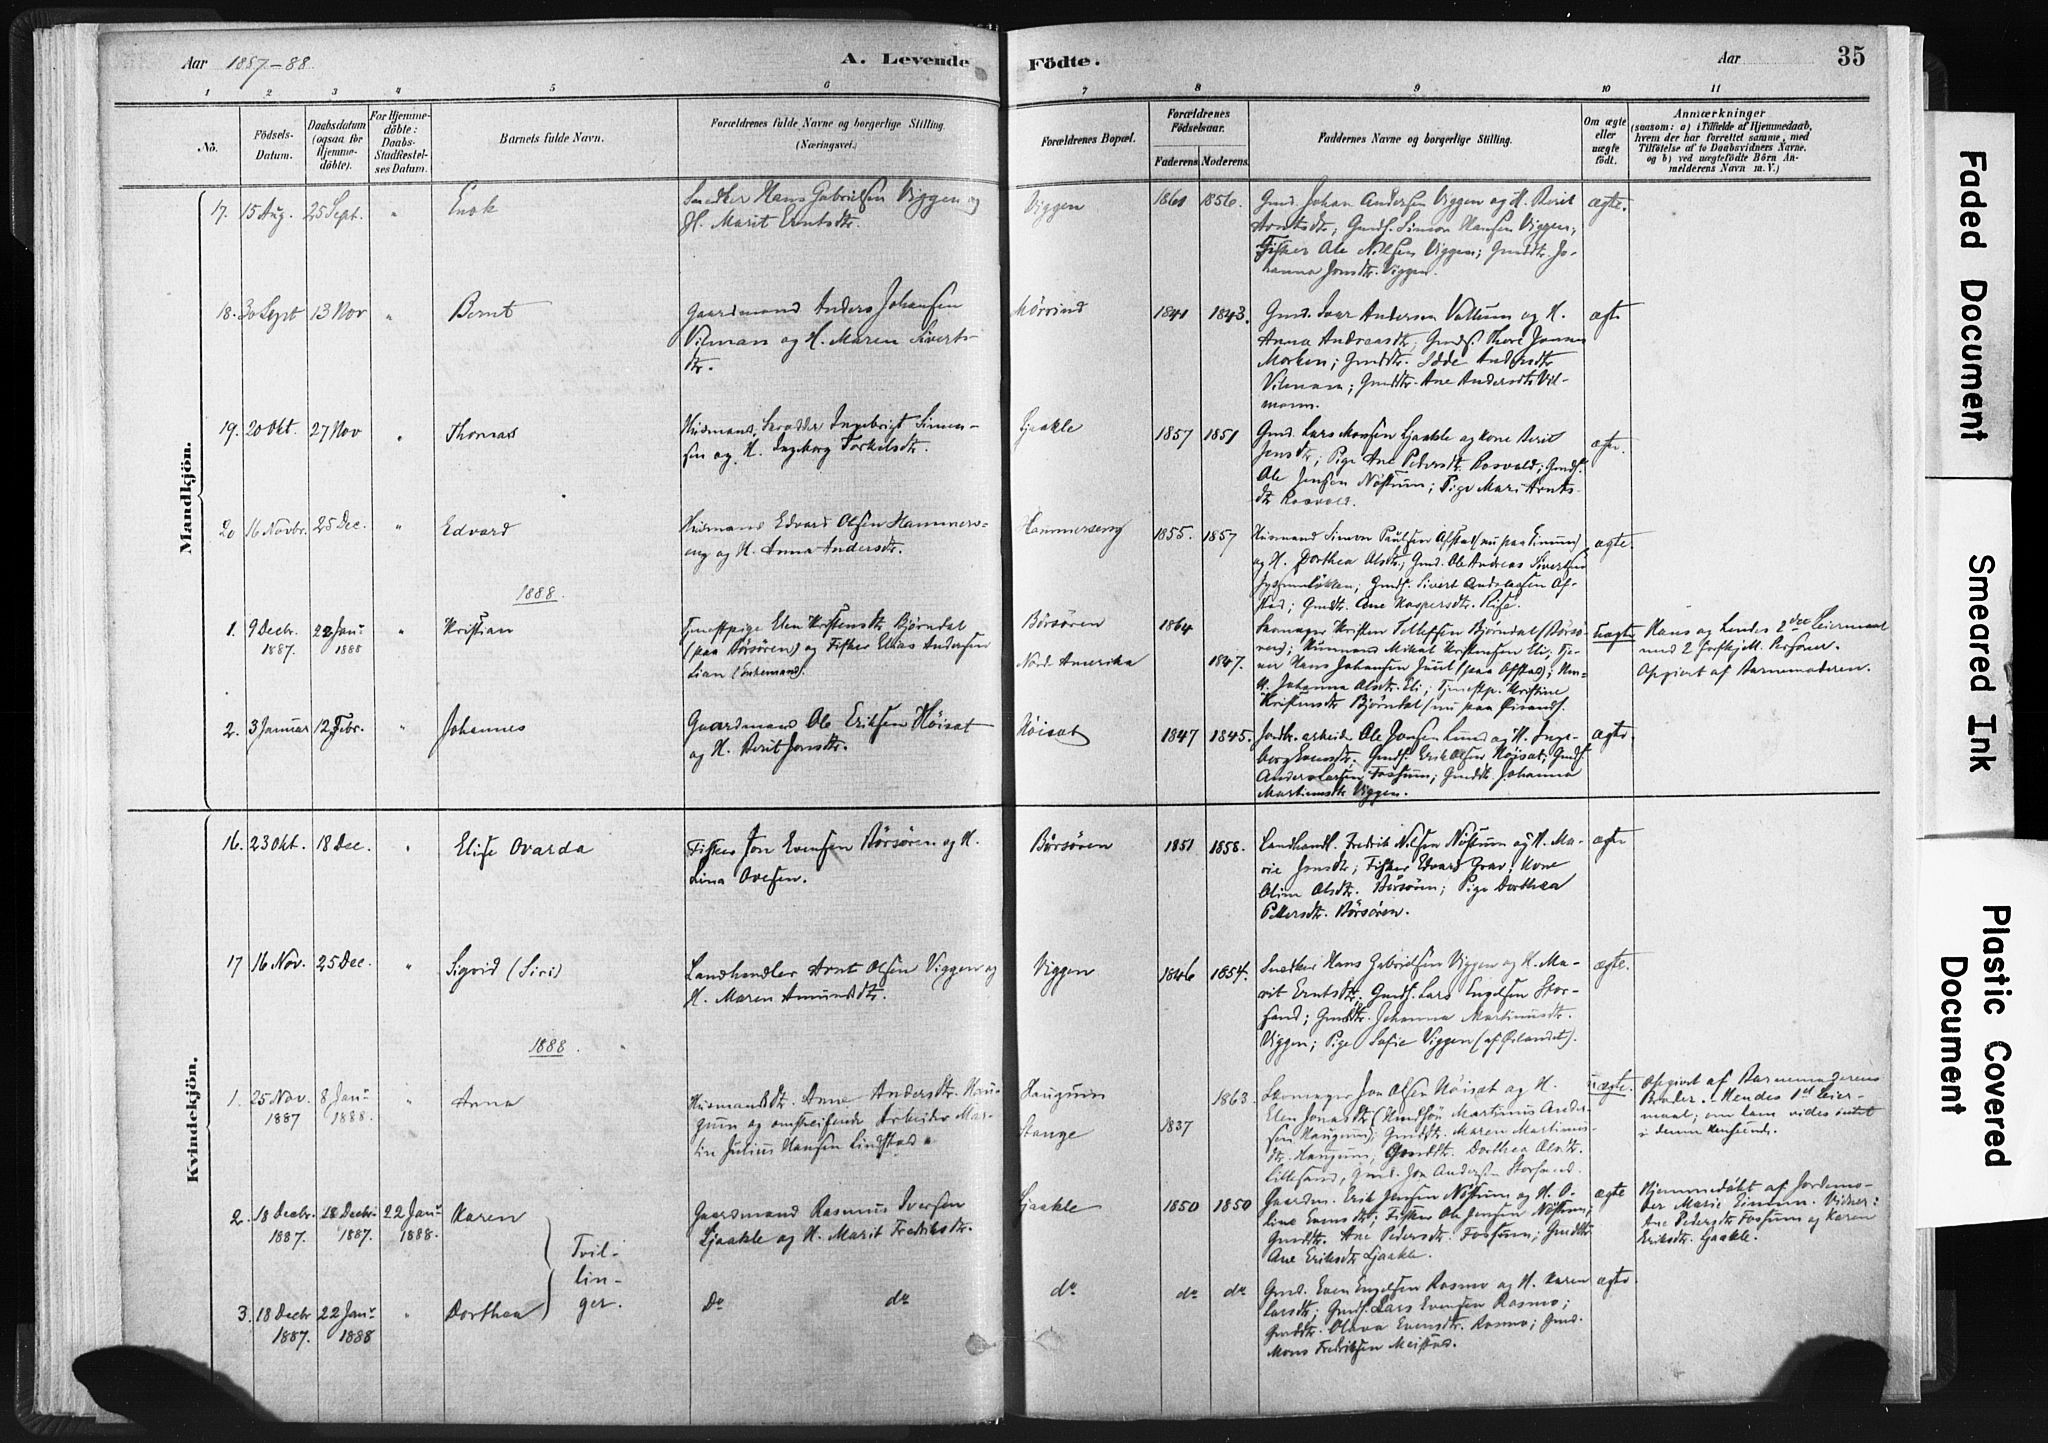 Aar 1887-88.
A. Levende Födte.
Aar
35
1 2 3 4 5 6 7 8 9 10 11
No.
Födsels-
Datum.
Daabsdatum
(ogsaa for
Hjemme-
döbte).
For Hjemme-
döbte:
Daabs-
Stadfæstel-
ses Datum.
Barnets fulde Navn.
Forældrenes fulde Navne og borgerlige Stilling.
(Næringsvei.)
Forældrenes Bopæl.
Forældrenes
Födselsaar.
Faderens. Moderens.
Faddernes Navne og borgerlige Stilling.
Om ægte
eller
uægte
født.
Anmærkninger
(saasom: a) i Tilfælde af Hjemmedaab,
hvem der har forrettet samme, med
Tilföielse af to Daabsvidners Navne,
og b) ved uægtefödte Börn An-
melderens Navn m. V.)
Mandkjön.
17. 15 Aug. 25 Sept. " Enok
Snedker Hans Gabrielsen Viggen og
H. Marit Erntsdtr.
Viggen
1861 1856.
Gmd. Johan Andersen Viggen og H. Berit
Arntsdtr; Gmds. Simon Hansen Viggen;
Fisker Ole Nilsen Viggen; Gmddtr. Jo-
hanna Jonsdtr. Viggen.
ægte.
18. 30 Sept 13 Nov " Bernt
Gaardmand Anders Johansen
Vilman og H. Maren Siverts-
dtr.
1841 1843.
Gmd. Ivar Andersen Vollum og H.
Anna Andreasdtr; Gmds. Thore Jonsen
Morken; Gmddtr. Idde Andersdtr
Vilmann; Gmddtr. Ane Andersdtr Vil-
mann.
ægte
19. 20 Okt. 27 Nov " Thomas
Husmand, Skrædder Ingebrigt Simon-
sen og H. Ingeborg Torkildsdtr.
Ljaakle
1857 1851
Gmd. Lars Monsen Ljaakle og Kone Berit
Jensdtr; Pige Ane Pedersdtr. Rosvold; Gmds.
Ole Jensen Nöstum; Pige Mari Arnts-
dtr Rosvold.
ægte.
20 16 Novbr. 25 Dec. " Edvard
Husmand Edvard Olsen Hammers-
eng og H. Anna Andersdtr.
Hammerseng
1855. 1857
Husmand Simon Paulsen Ofstad (nu paa Eimum)
og H. Dorthea Olsdtr; Gmd. Ole Andreas Sivertsen
Gmds. Sivert Andreassen Of-
stad; Gmddtr. Ane Kaspersdtr. Risø.
ægte.
1888.
1. 9 Decbr. 22 Janr " Kristian
1887. 1888
Tjenestpige Elen Kristensdtr Bjørndal
(paa Börsören) og Fisker Elias Andersen
Lian (Enkemand).
Börsören
Nord. Amerika
1864
1847.
Skomager Kristen Tollefsen Bjørndal (Börsö-
ren); Mikal Kristensen Eli; Tje-
ner Hans Johansen Juul (paa Ofstad);
H. Johanna Olsdtr. Eli; Tjenestp. Kristine
Kristensdtr Bjørndal
Uægte
Hans og hendes 2den Leiermaal
med 2 forskjell. Personer.
Opgivet af Barnemoderen.
2. 3 Januar 12 Febr. " Johannes
Gaardmand Ole Eriksen Höisat
og H. Berit Jonsdtr.
Höisat
1847 1845.
Jordbr. arbeider Ole Jonsen Lund og H. Inge-
borg Evensdtr; Gmds. Erik Olsen Höisat; Gmds.
Anders Larsen Fossum; Gmddtr. Johanna
Martinusdtr Viggen.
ægte.
Kvindekjön.
16. 23 Okt. 18 Dec. " Elise Ovarda
Fisker Jon Evensen Börsören og H.
Lina Ovesen.
Börsören
1851 1858.
Landhandl. Fredrik Nilsen Nöstum og H. Ma-
rie Jensdtr; Fisker Edvard Grav; Kone
Oline Olsdtr. Börsören; Pige Dorthea
Pettersdtr. Börsören.
ægte
17 16 Nov. 25 Dec. " Sigrid (Siri)
Landhandler Arnt Olsen Viggen og
H. Maren Amundsdtr.
Viggen
1846 1854.
Snedker Hans Gabrielsen Viggen og H. Ma-
rit Erntsdtr; Gmds. Lars Engelsen Stor-
sand; Gmddtr. Johanna Martinusdtr.
Viggen; Pige Sofie Viggen (af Ørlandet).
ægte.
1888.
1. 25 Nov. 8 Janr " Anna
1887 1888.
Husmandsdtr. Anne Andersdtr. Hau-
gum og omstreifende Arbeider Mar-
tin Julius Hansen Lindstad
Haugum
Stange
1863.
1837
Skomager Jon Olsen Höisat og H.
Elen Jonasdtr (Huusf. Martinus Ander-
sen Haugum); Gmddtr. Maren Martinus-
dtr. Haugum; Gmddtr. Dorthea Olsdtr.
Lillesand; Gmd. Jon Andersen Storsand.
uægte.
Opgivet af Barnemoderens
Broder. Hendes 1ste Leier-
maal; om ham vides intet
i denne Henseende.
2. 18 Decbr. 18 Decbr. 22 Janr Karen
1887. 1887. 1888.
Gaardmand Rasmus Iversen
Ljaakle og H. Marit Fredriksdtr.
Ljaakle
1850 1850
Gaardm. Erik Jensen Nöstum og H. O-
line Evensdtr; Fisker Ole Jensen Nöstum;
Gmddtr. Ane Pedersdtr. Fossum; Gmddtr.
Ane Eriksdtr Ljaakle.
ægte
Hjemmedöbt af Jordemo-
der Marie Eimum. Vidner:
Ane Pedersdtr Fossum og Karen
Eriksdtr. Ljaakle.
Tvil-
lin-
ger.
3. 18 Decbr 22 Janr " Dorthea
1887. 1888
Do do do do do
Gmd. Even Engelsen Rosmo og H. Karen
Larsdtr; Gmds. Lars Evensen Rosmo;
Gmddtr. Olava Evensdtr. Rosmo; Gmd.
Mons Fredriksen Meistad.
ægte.
Faded Document
Smeared Ink
Plastic Covered
Document